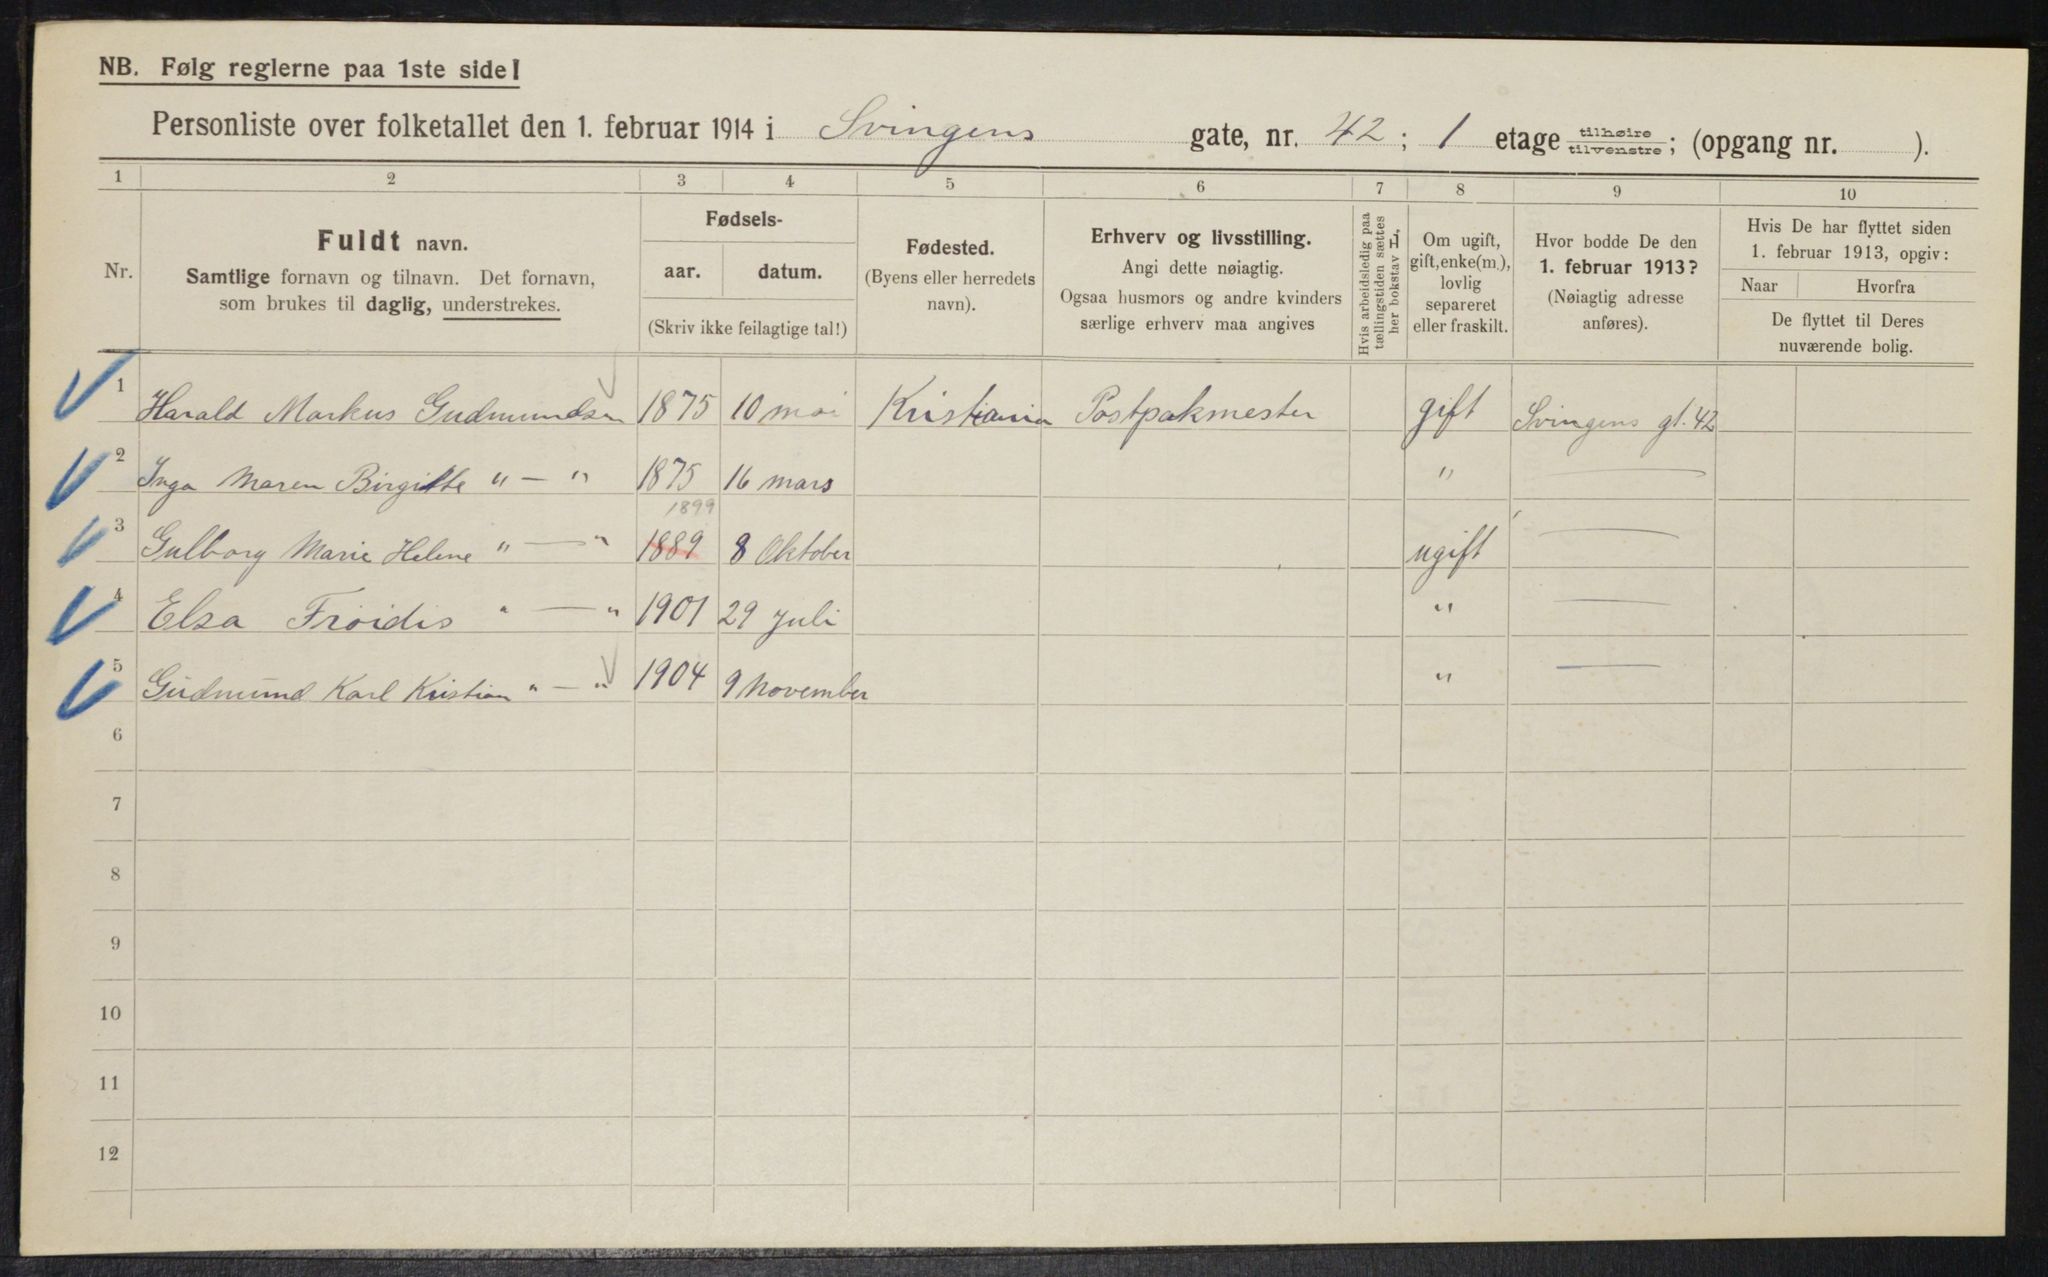 NB. Følg reglerne paa 1ste side!
Personliste over folketallet den 1. februar 1914 i Svingens gate, nr. 42; 1 etage tilhøire tilvenstre; (opgang nr. ).
1 2 3 4 5 6 7 8 9 10
Nr.
Fuldt navn.
Samtlige fornavn og tilnavn. Det fornavn,
som brukes til daglig, understrekes.
Fødsels-
aar. datum.
(Skriv ikke feilagtige tal!)
Fødested.
(Byens eller herredets
navn).
Erhverv og livsstilling.
Angi dette nøiagtig.
Ogsaa husmors og andre kvinders
særlige erhverv maa angives
Hvis arbeidsledig paa
tællingstiden sættes
her bokstav L,
Om ugift,
gift, enke(m.),
lovlig
separeret
eller fraskilt.
Hvor bodde De den
1. februar 1913?
(Nøiagtig adresse
anføres).
Hvis De har flyttet siden
1. februar 1913, opgiv:
Naar Hvorfra
De flyttet til Deres
nuværende bolig.
1 Harald Markus Gudmundsen 1875 10 mai Kristiania Postpakmester gift Svingens gt. 42
2 Inga Maren Birgitte " — " 1875 16 mars " —
1899
3 Gulborg Marie Helene " — " 1889 8 Oktober ugift —
4 Elsa Frøidis " — " 1901 29 Juli " —
5 Gudmund Karl Kristian " — " 1904 9 November " —
6
7
8
9
10
11
12